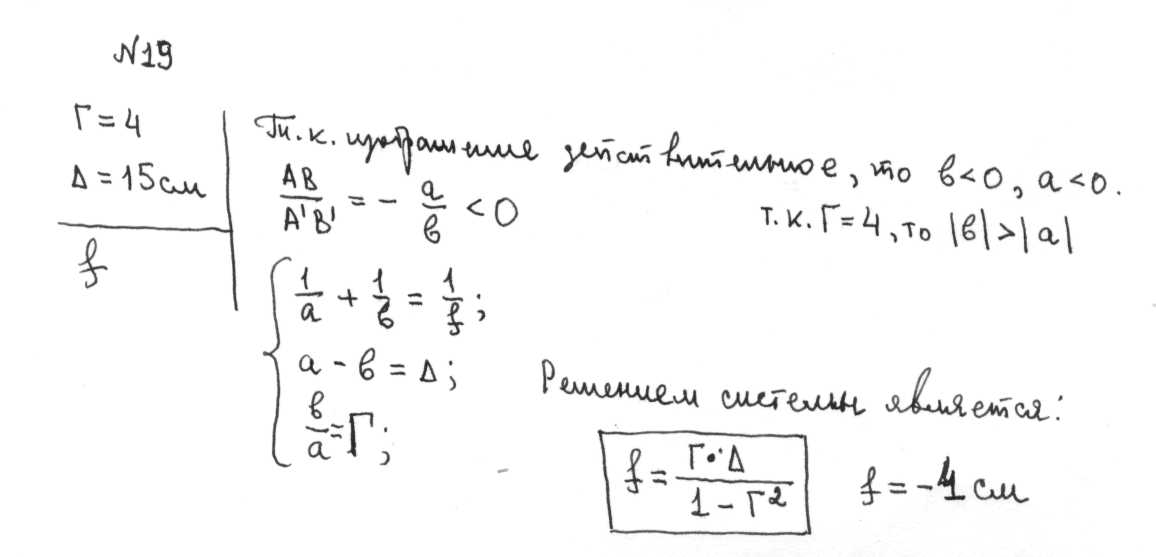 N19
Г = 4
Δ = 15 см
f
Т.к. изображение действительное, то b<0, a<0.
AB/A'B' = - a/b < 0
т.к. Г=4, то |b|>|a|
1/a + 1/b = 1/f;
a - b = Δ;
b/a = Г;
Решением системы является:
f = Г·Δ/(1 - Г²)
f = -4 см